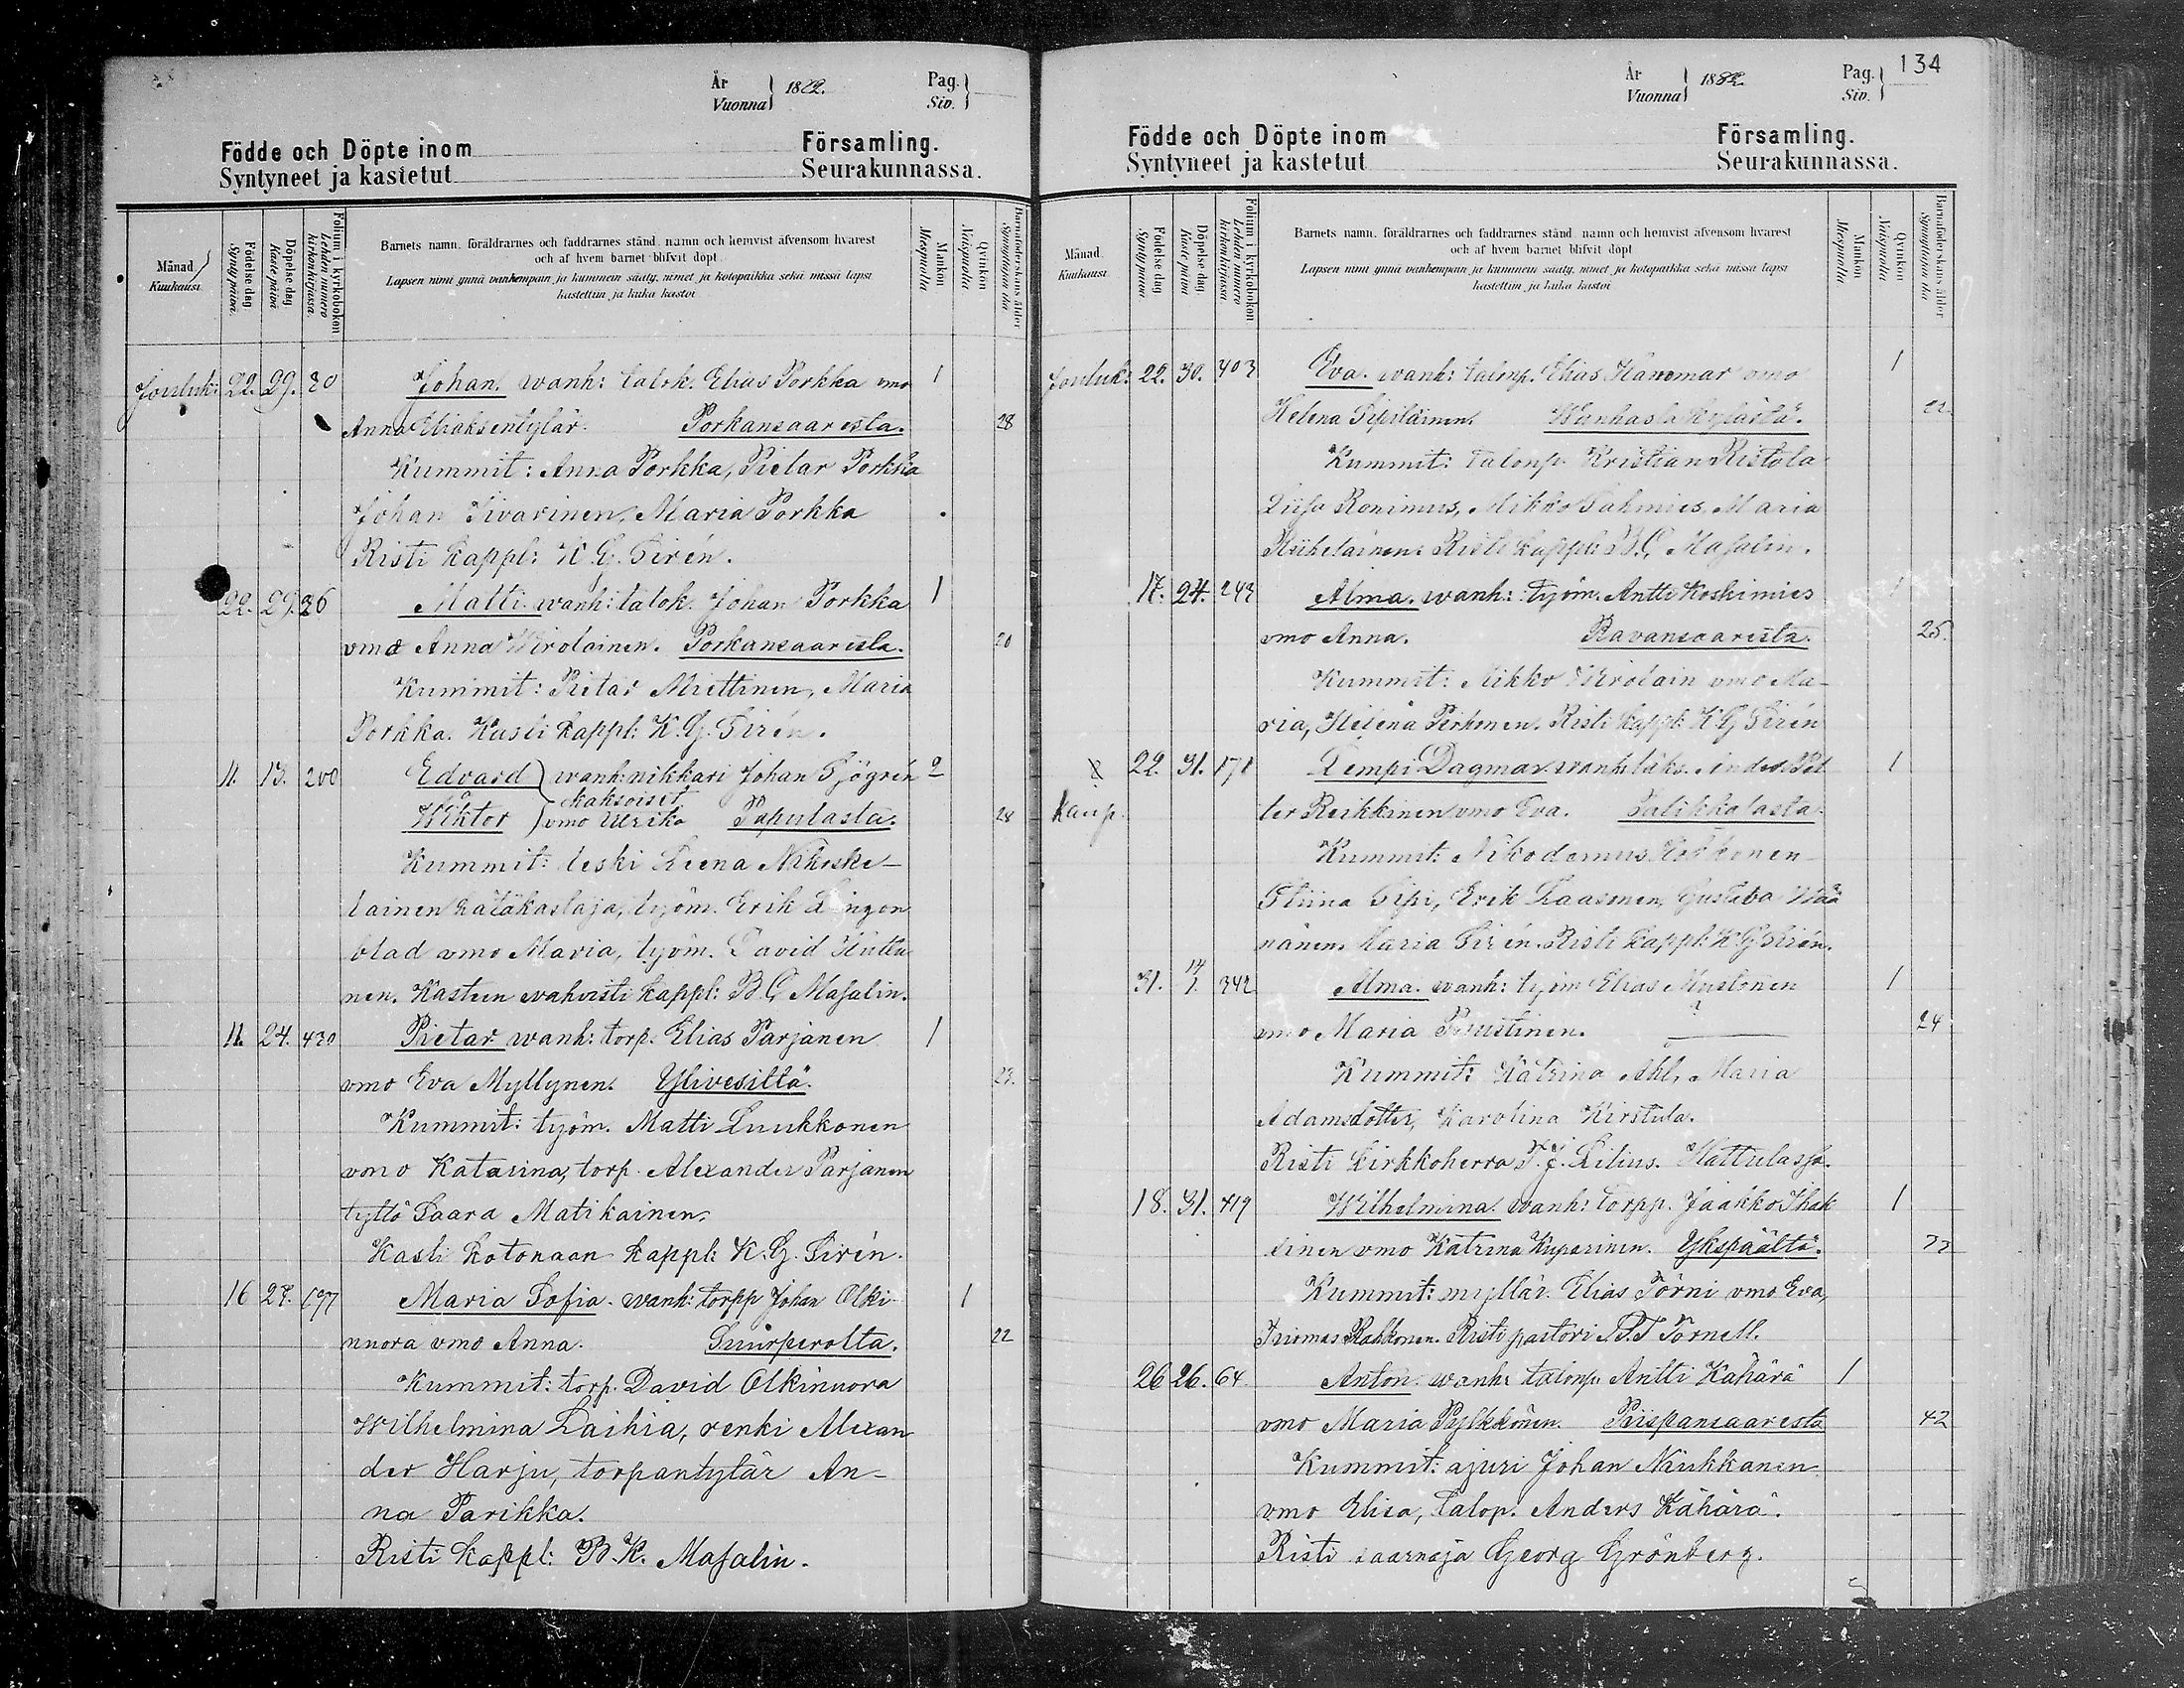 År
Vuonna } 1882.
Pag.
Siv. }
Födde och Döpte inom Församling.
Syntyneet ja kastetut Seurakunnassa.
Månad
Kuukausi
Födelse dag
Synty päivä.
Döpelse dag
Kaste päivä
Folium i kyrkoboken
Lehden numero kirkonkirjassa
Barnets namn, föräldrarnes och faddrarnes stånd, namn och hemvist äfvensom hvarest
och af hvem barnet blifvit döpt
Lapsen nimi ynnä vanhempain ja kummein sääty, nimet ja kotopaikka sekä missä lapsi
kastettiin ja kuka kastoi
Mankön
Miespuolia
Qvinkön
Naispuolia
Barnaföderskans ålder
Synnyttäjän ikä
Jouluk: 22. 29. 20 Johan. wanh: talok. Elias Porkka vmo 1
Anna Eliaksentytär. Porkansaaresta. 28
Kummit: Anna Porkka, Pietar Porkka
Johan Sivarinen, Maria Porkka
Risti kappl: K. G. Sirén.
22. 29. 26 Matti. wanh: talok. Johan Porkka 1
vmo Anna Wirolainen. Porkansaaresta. 20
Kummit: Pietar Miettinen, Maria
Porkka. Kasti kappl: K. G. Sirén.
11. 13. 200 Edvard ) wanh: nikkari Johan Sjögrén 2
kaksoiset
Wiktor ) vmo Ulrika Papulasta. 28
Kummit: leski Leena Nikoske-
lainen hätäkastaja, työm. Erik Lingon
blad vmo Maria, työm. David Huttu
nen. Kasteen vahvisti kappl: B. G. Masalin.
11. 24. 430 Pietar wanh: torp. Elias Parjanen 1
vmo Eva Myllynen. Ylivesiltä. 23.
Kummit: työm. Matti Luukkonen
vmo Katarina, torp. Alexander Parjanen
tyttö Saara Matikainen.
Kasti kotonaan kappl: K. G. Sirén.
16 27. 197 Maria Sofia. wanh: torpp Johan Olki- 1
nuora vmo Anna. Suurperolta. 22
Kummit: torp. David Olkinuora
Wilhelmina Laihia, renki Alexan
der Harju, torpantytär An-
na Parikka.
Risti kappl: B. K. Masalin.
134
År
Vuonna } 1882.
Pag.
Siv. }
Födde och Döpte inom Församling.
Syntyneet ja kastetut Seurakunnassa.
Månad
Kuukausi
Födelse dag
Synty päivä
Döpelse dag
Kaste päivä
Folium i kyrkoboken
Lehden numero kirkonkirjassa
Barnets namn, föräldrarnes och faddrarnes stånd, namn och hemvist äfvensom hvarest
och af hvem barnet blifvit döpt
Lapsen nimi ynnä vanhempain ja kummein sääty, nimet ja kotopaikka sekä missä lapsi
kastettiin ja kuka kastoi
Mankön
Miespuolia
Qvinkön
Naispuolia
Barnaföderskans ålder
Synnyttäjän ikä
Jouluk: 22. 30. 403 Eva. wanh: talonp. Elias vmo 1
Helena Sipiläinen. Wanhasta kylästä. 22.
Kummit: talonp. Kristian Ristola
Liisa Ronimus, Mikko Maria
Risti kappl: B. G. Masalin.
17. 24. 243 Alma. wanh: työm. Antti Koskimies 1
vmo Anna. Ravansaaresta. 25.
Kummit: Mikko Wirolain vmo Ma-
ria, Helena Pirhonen. Risti kappl: K G Sirén
22. 31. 171 Lempi Dagmar wanh: 1
ter Reikkinen vmo Eva. Talikkalasta.
Kaup.
Kummit: Nikodemus
Stiina Sipi, Erik Laasonen, Gustava Wää
nänen, Maria Sirén. Risti kappl: K. G. Sirén.
31. 14/1. 342 Alma. wanh: työm Elias Mustonen 1
vmo Maria Puustinen. ? 24
Kummit: Katrina Ahl, Maria
Adamsdotter, Karolina Kirstula.
Risti kirkkoherra Lilius. Hattulassa.
18. 31. 419 Wilhelmina. wanh: torpp. Jaakko Ihak 1
sinen vmo Katrina Kuparinen. Ykspäältä. 33
Kummit: myllär. Elias Törni vmo Eva,
Tuomas Rahkonen. Risti pastori Törnell.
26 26. 64 Anton. wanh: talonp. Antti Kähärä 1
vmo Maria Pylkkönen. Piispansaaresta 42
Kummit: ajuri Johan Naukkanen
vmo Elisa, talop. Anders Kähärä.
Risti saarnaja Georg Grönberg.